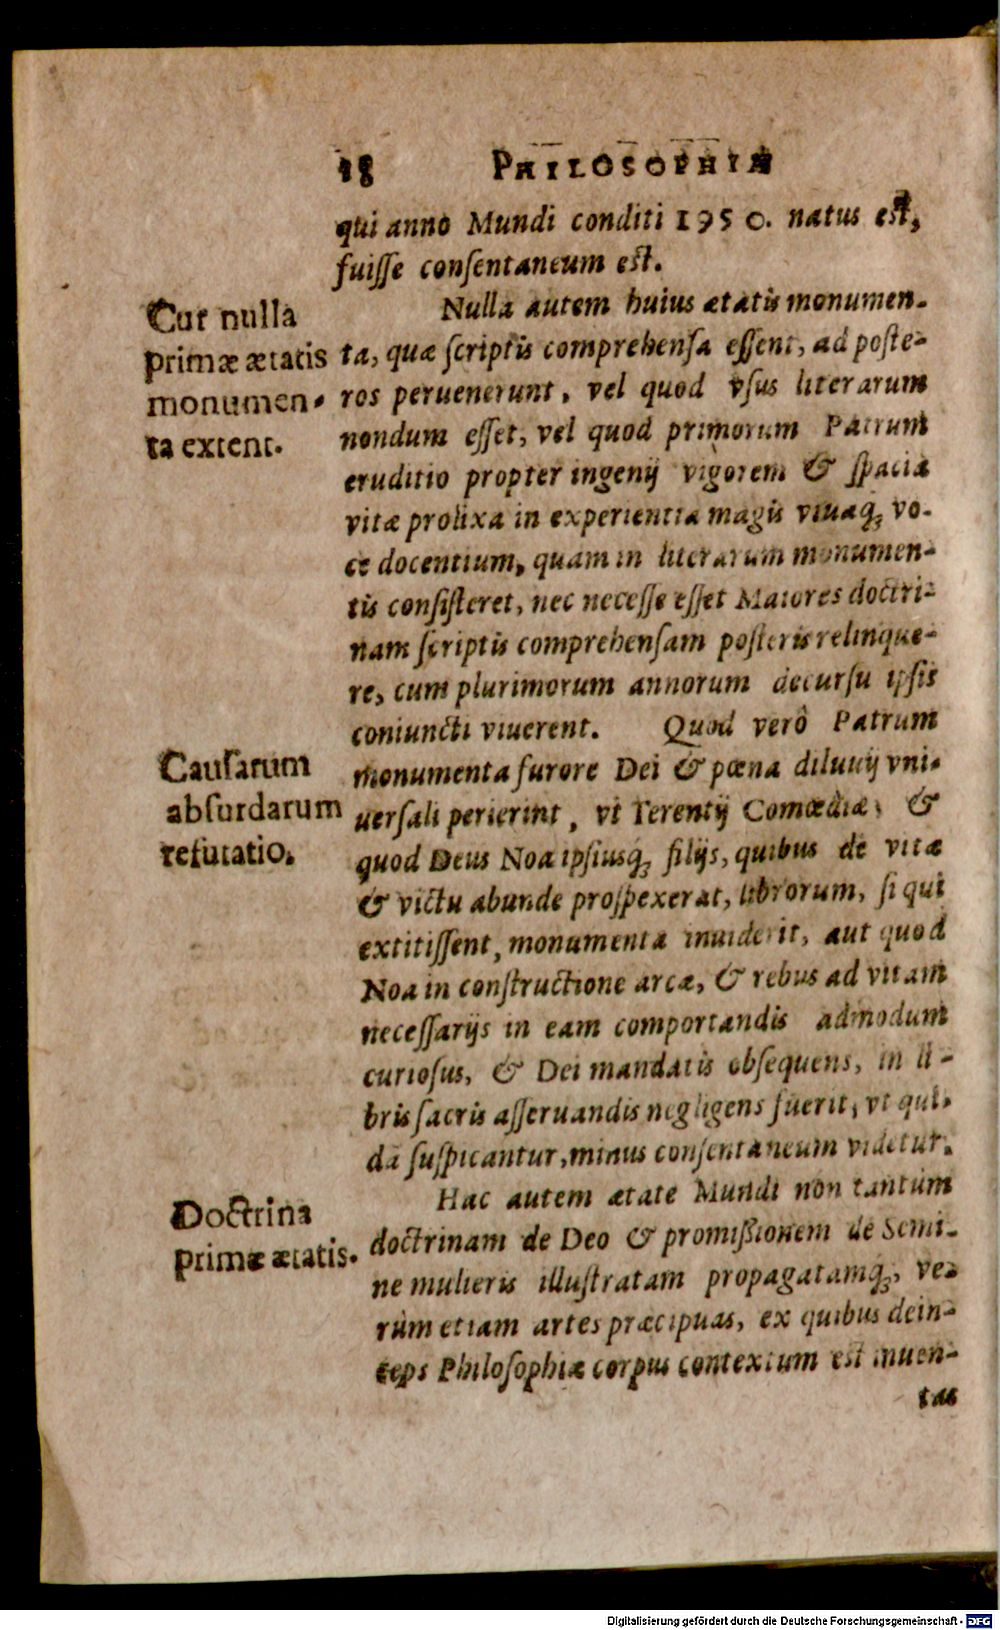 18 PHILOSOPHIÆ
qui anno Mundi conditi 1950. natus est,
fuisse consentaneum est.
Nulla autem huius ætatis monumen-
Cur nulla
primæ ætatis
monumen-
ta extent.
ta, quæ scriptis comprehensa essent, ad poste-
ros peruenerunt, vel quod vsus literarum
nondum esset, vel quod primorum Patrum
eruditio propter ingenij vigorem & spacia
vitæ prolixa in experientia magis viuaq́; vo-
ce docentium, quam in literarum monumen-
tis consisteret, nec necesse esset Maiores doctri-
nam scriptis comprehensam posteris relinque-
re, cum plurimorum annorum decursu ipsis
coniuncti viuerent. Quod verò Patrum
Causarum
absurdarum
refutatio.
monumenta furore Dei & pœna diluuij vni-
uersali perierint, vt Terentij Comœdiæ, &
quod Deus Noa ipsiusq́; filijs, quibus de vita
& victu abunde prospexerat, librorum, si qui
extitissent, monumenta inuiderit, aut quod
Noa in constructione arcæ, & rebus ad vitam
necessarijs in eam comportandis admodum
curiosus, & Dei mandatis obsequens, in li-
bris sacris asseruandis negligens fuerit, vt qui-
dā suspicantur, minus consentaneum videtur.
Hac autem ætate Mundi non tantùm
Doctrina
primæ ætatis.
doctrinam de Deo & promißionem de Semi-
ne mulieris illustratam propagatamq́;, ve-
rùm etiam artes præcipuas, ex quibus dein-
ceps Philosophiæ corpus contextum est inuen-
tas
Digitalisierung gefördert durch die Deutsche Forschungsgemeinschaft - DFG